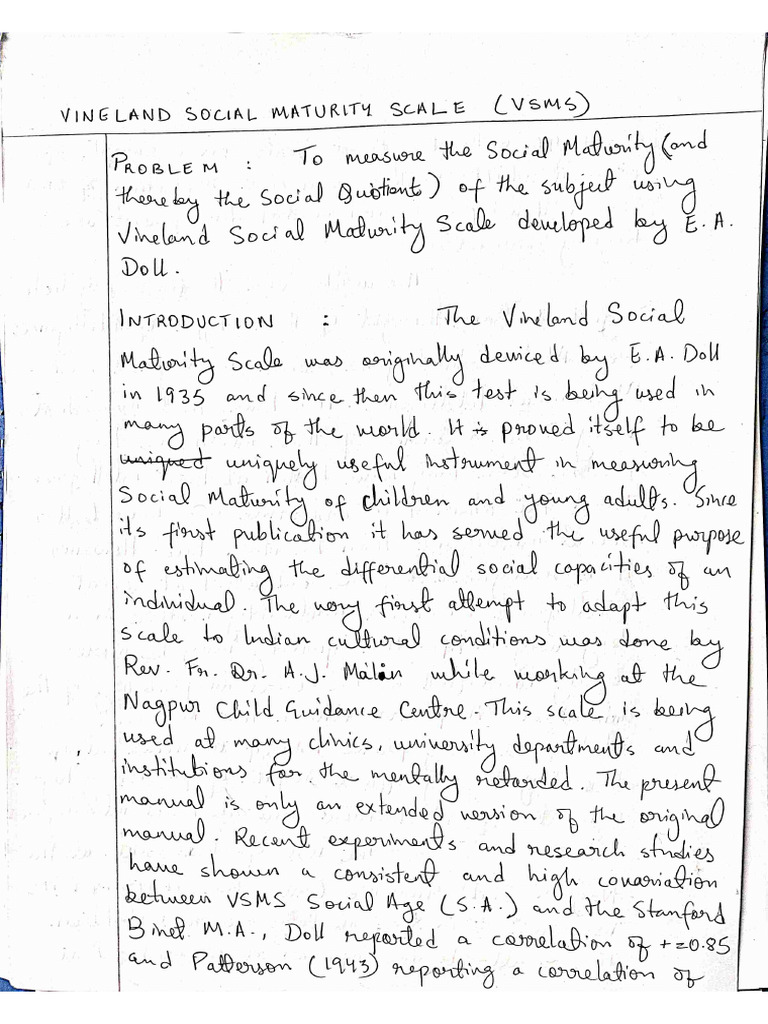 VINELAND SOCIAL MATURITY SCALE (VSMS)
PROBLEM : To measure the Social Maturity (and
thereby the Social Quotient) of the subject using
Vineland Social Maturity Scale developed by E. A.
Doll.
INTRODUCTION : The Vineland Social
Maturity Scale was originally deviced by E. A. Doll
in 1935 and since then this test is being used in
many parts of the world. It is proved itself to be
uniqued uniquely useful instrument in measuring
Social Maturity of children and young adults. Since
its first publication it has served the useful purpose
of estimating the differential social capacities of an
individual. The very first attempt to adapt this
scale to Indian cultural conditions was done by
Rev. Fr. Dr. A. J. Malin while working at the
Nagpur Child Guidance Centre. This scale is being
used at many clinics, university departments and
institutions for the mentally retarded. The present
manual is only an extended version of the original
manual. Recent experiments and research studies
have shown a consistent and high covariation
between VSMS Social Age (S.A.) and the Stanford
Binet M.A., Doll reported a correlation of +=0.85
and Patterson (1943) reporting a correlation of